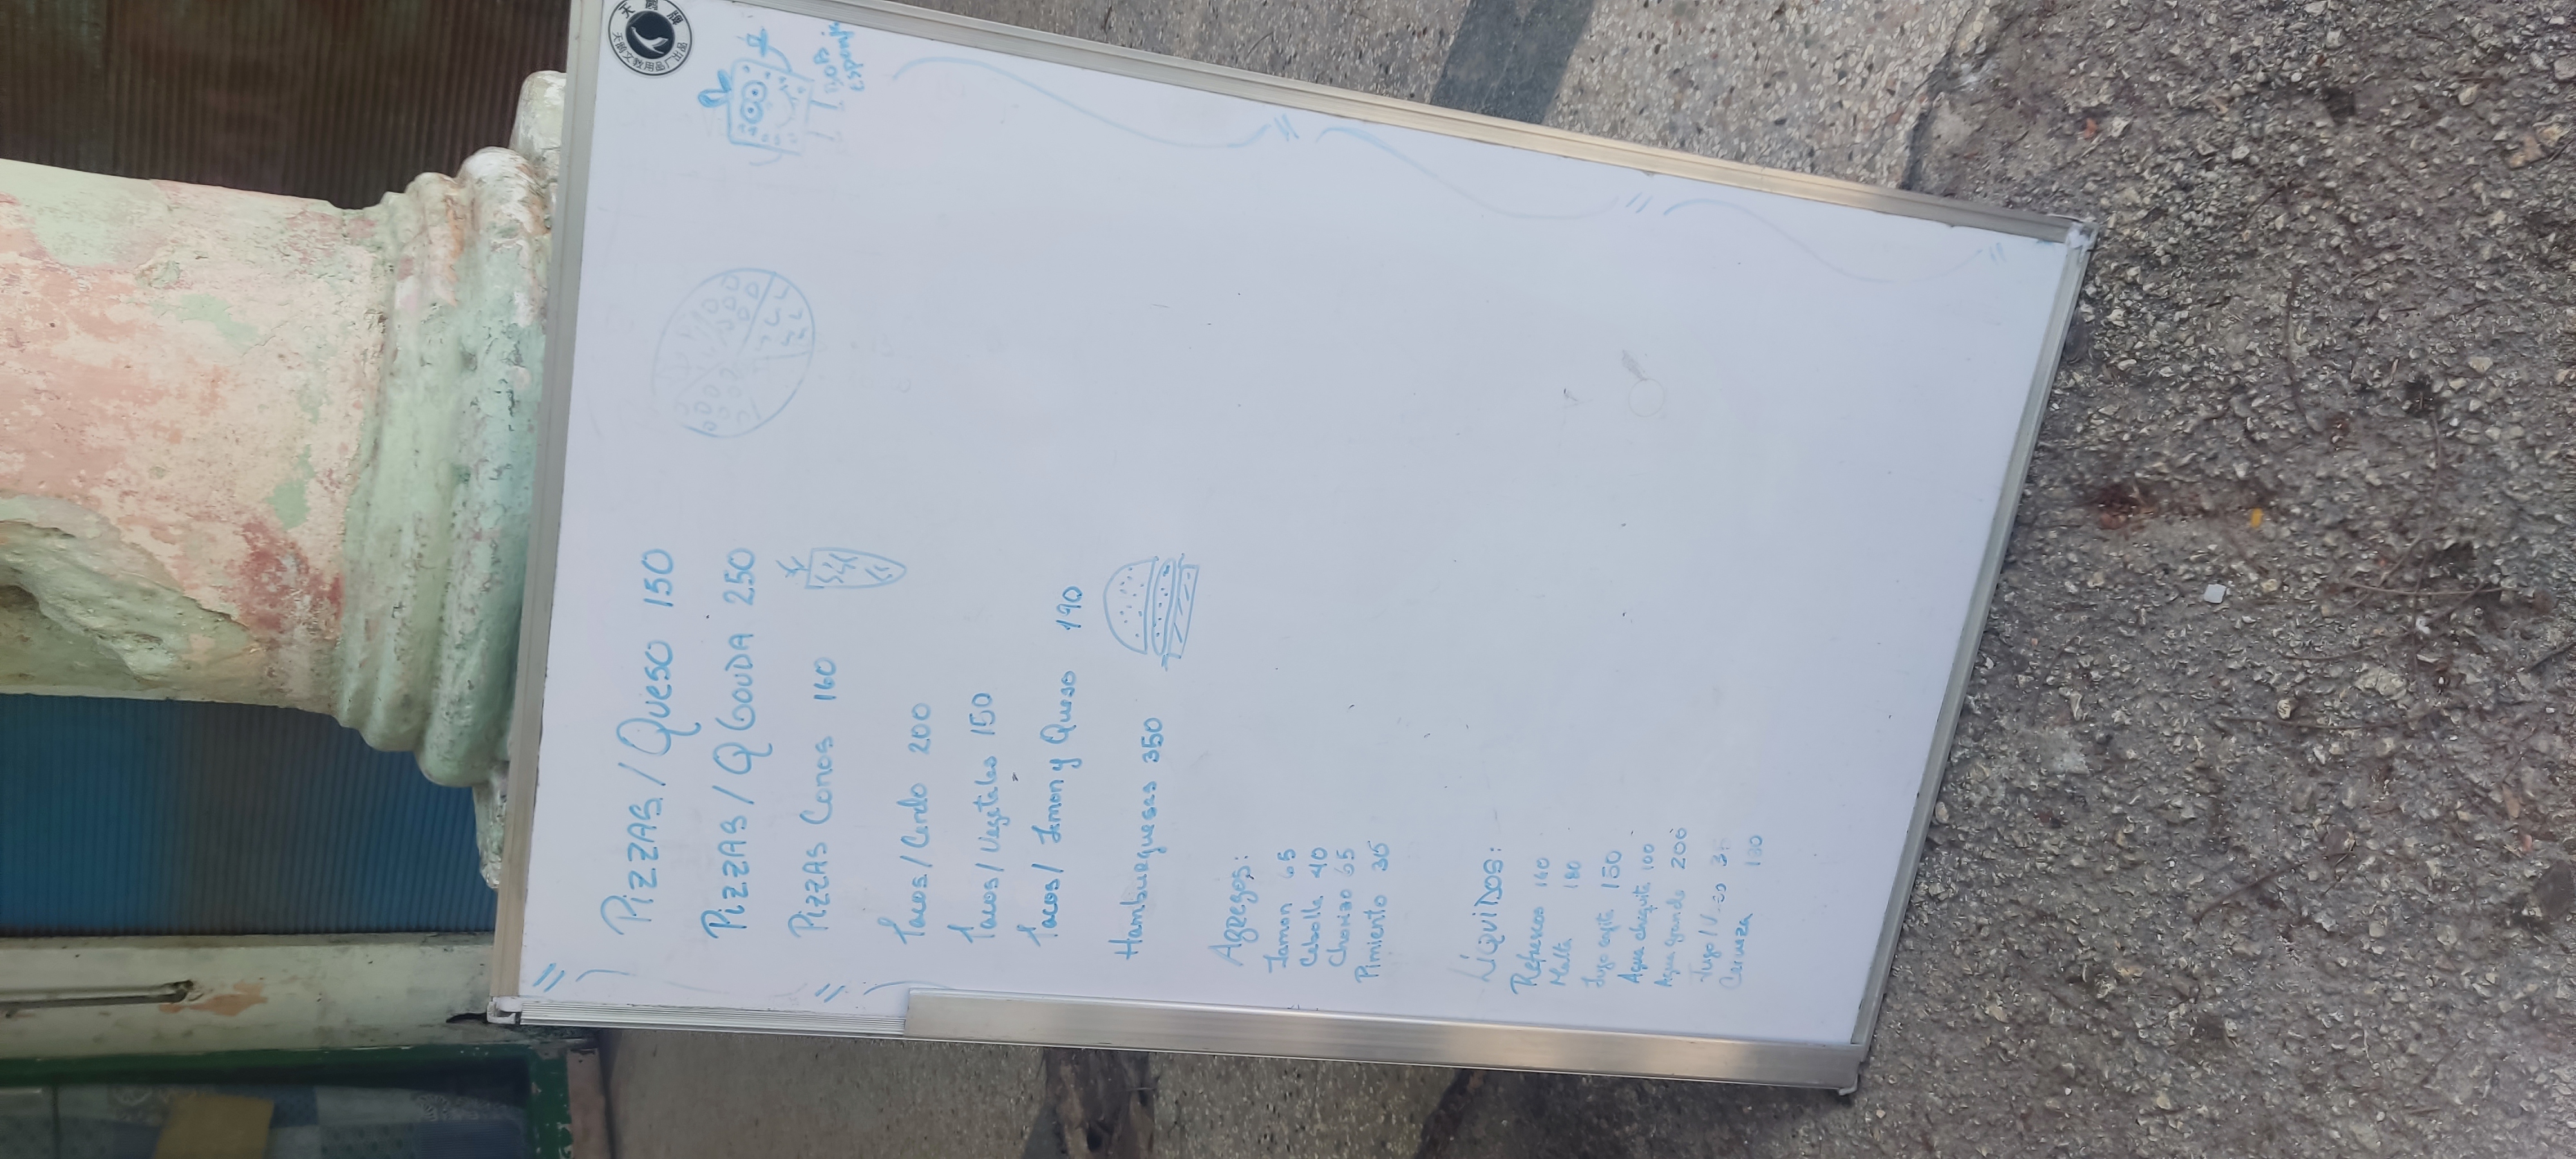 Pizzas / Queso 150
Pizzas / Q Gouda 250
Pizzas Conos 160
Tacos / Cerdo 200
Tacos / Vegetales 150
Tacos / Jamon y Queso 190
Hamburguesas 350
BOB
Esponja
Agregos:
Jamon 65
Cebolla 40
Chorizo 65
Pimiento 35
Líquidos:
Refrescos 160
Malta 180
Jugo cajita 150
Agua chiquita 100
Agua grande 200
Jugo / Vaso
Cerveza